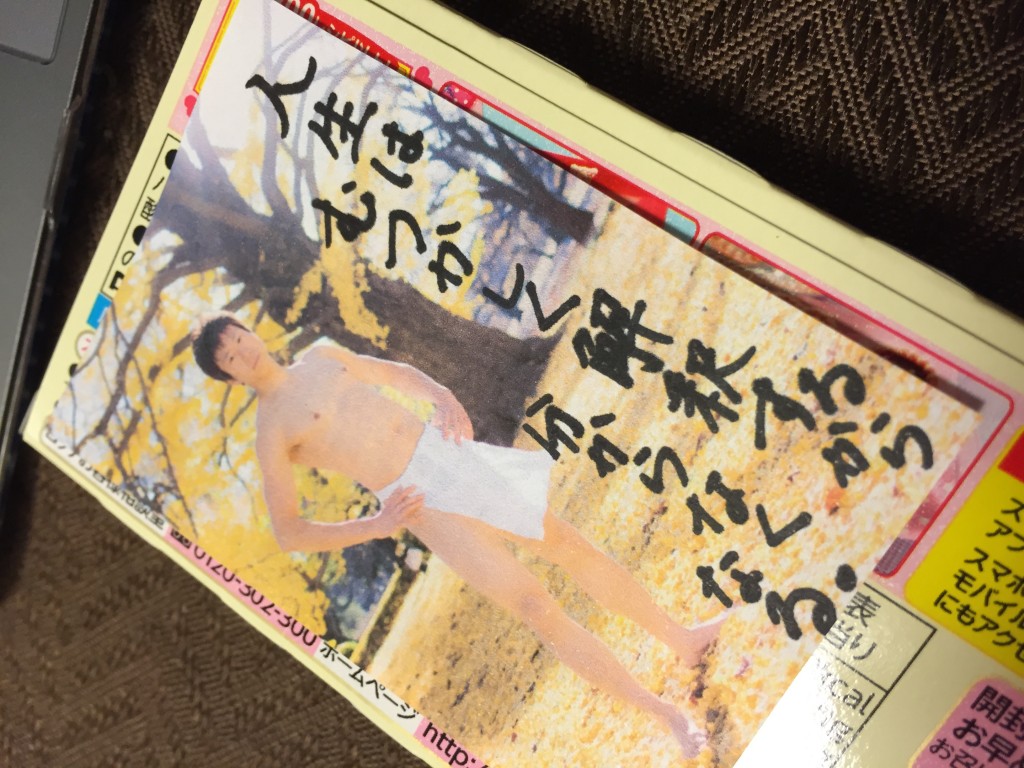 人生は
むつかしく解釈するから
分からなくなる。
0120-302-300 ホームページ
http:/
表
当り
cal
ス
アプ
スマホ
モバイル
にもアクセ
開封
お早
お召